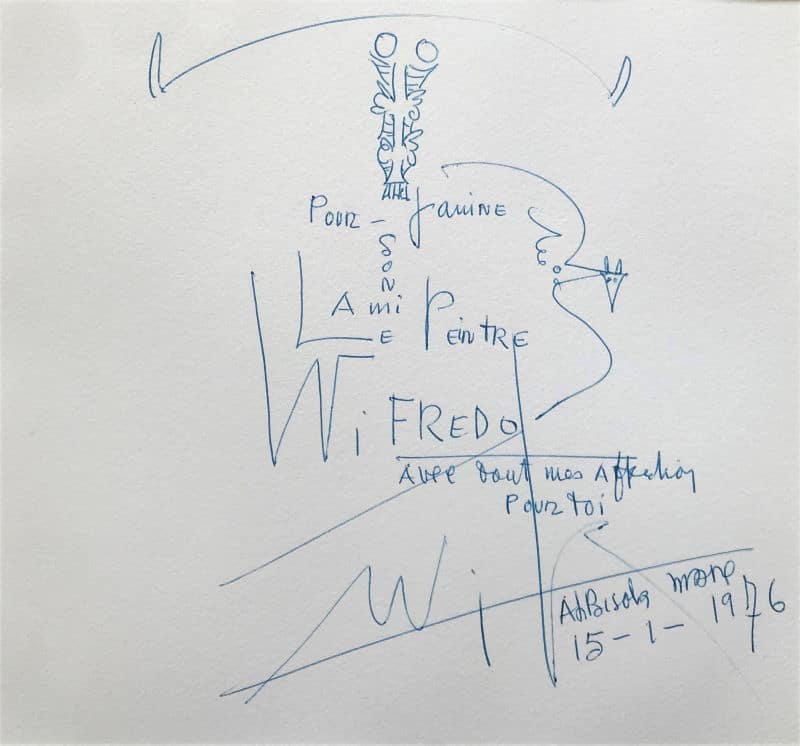 Pour - Janine
L Ami Peintre
WiFREDO
Avec tout mes Affection
Pour toi
Wi
AlBisola mare
15-1-1976